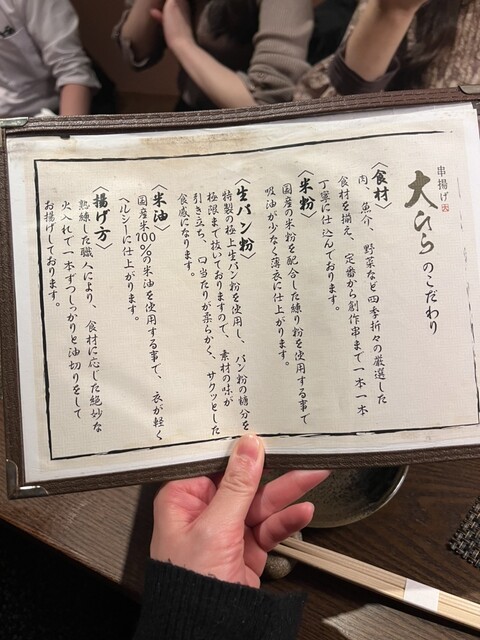 串揚げ
大ひらのこだわり
〈食材〉
肉、魚介、野菜など四季折々の厳選した
食材を揃え、定番から創作串まで一本一本
丁寧に仕込んでおります。
〈米粉〉
国産の米粉を配合した練り粉を使用する事で
吸油が少なく薄衣に仕上がります。
〈生パン粉〉
特製の極上生パン粉を使用し、パン粉の糖分を
極限まで抜いておりますので、素材の味が
引き立ち、口当たりが柔らかく、サクッとした
食感になります。
〈米油〉
国産米100%の米油を使用する事で、衣が軽く
ヘルシーに仕上がります。
〈揚げ方〉
熟練した職人により、食材に応じた絶妙な
火入れで一本ずつしっかりと油切りをして
お揚げしております。